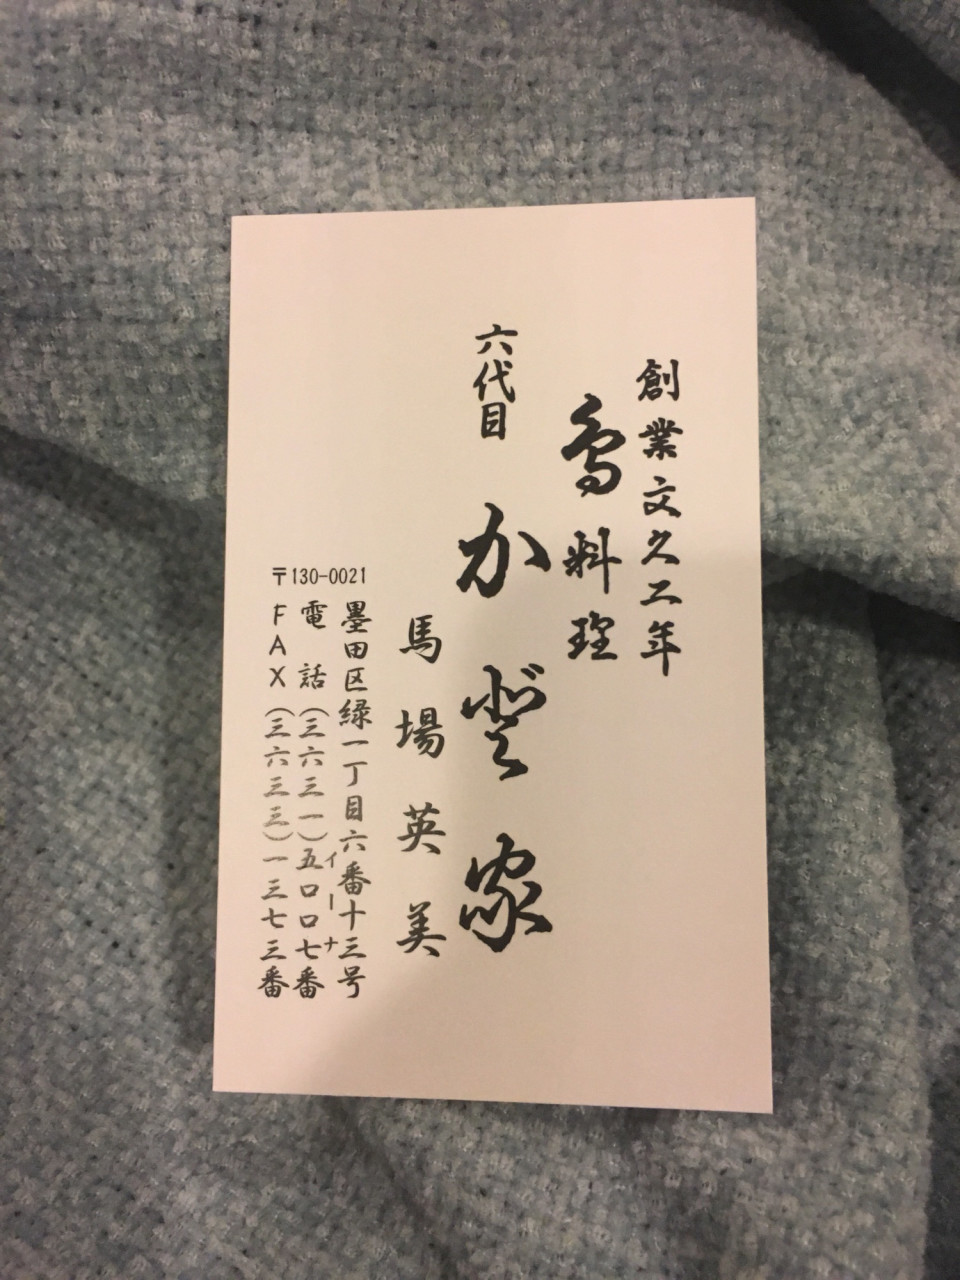 創業文久二年
鳥料理
六代目 かど家
馬場英美
墨田区緑一丁目六番十三号
イーナ
電話(三六三一)五〇〇七番
FAX(三六三三)一三七三番
〒130-0021